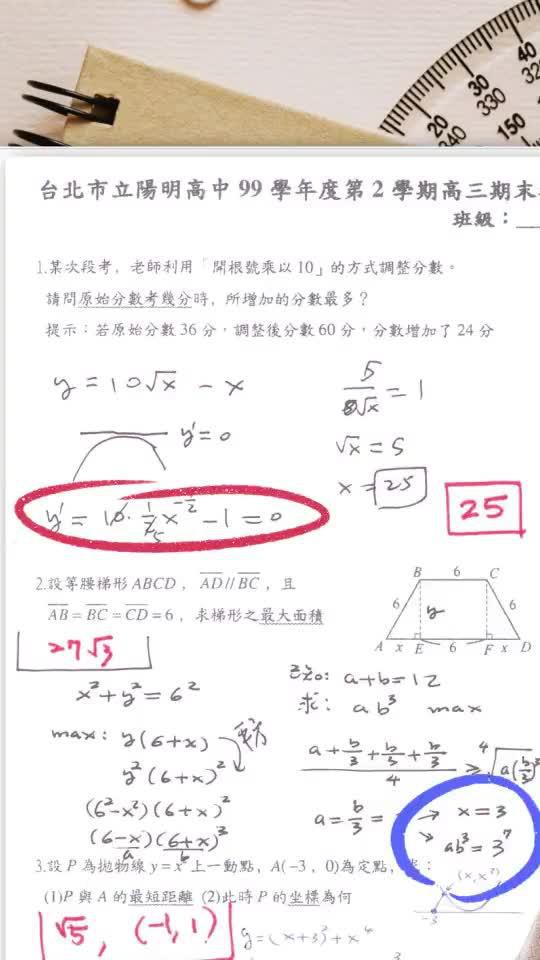 40
30
320
330
20
340
150
台北市立陽明高中 99 學年度第 2 學期高三期末
班級：
1.某次段考，老師利用「開根號乘以 10」的方式調整分數。
請問原始分數考幾分時，所增加的分數最多？
提示：若原始分數 36 分，調整後分數 60 分，分數增加了 24 分
y = 10√x - x
y' = 0
5/√x = 1
√x = 5
x = 25
25
y' = 10 · 1/2 x^(-1/2) - 1 = 0
5
2.設等腰梯形 ABCD， AD // BC ，且
AB = BC = CD = 6，求梯形之最大面積
B 6 C
6 y 6
A x E 6 F x D
27√3
x² + y² = 6²
max: y(6+x)
平方
y²(6+x)²
(6²-x²)(6+x)²
(6-x)(6+x)³
a b
已知: a+b=12
求: ab³ max
(a + b/3 + b/3 + b/3)/4 ≥ ⁴√(a(b/3)³
a = b/3 =
→ x = 3
↘ ab³ = 3⁷
3.設 P 為拋物線 y = x² 上一動點，A(-3，0)為定點，：
(1)P 與 A 的最短距離 (2)此時 P 的坐標為何
(x, x²)
-3
√5, (-1, 1)
y = (x+3)² + x⁴
3